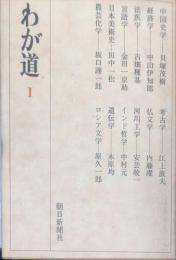 わが道
I
中国史学——貝塚茂樹
経済学——中山伊知郎
法医学——古畑種基
言語学——金田一京助
日本美術史——田中一松
農芸化学——坂口謹一郎
考古学——江上波夫
仏文学——内藤濯
河川工学——安芸皎一
インド哲学——中村元
遺伝学——木原均
ロシア文学——原久一郎
朝日新聞社